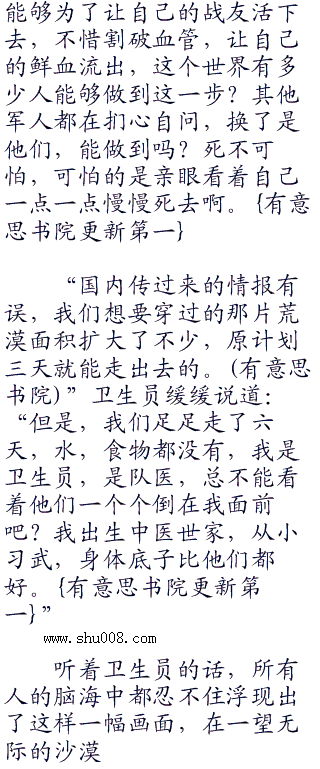 能够为了让自己的战友活下
去，不惜割破血管，让自己
的鲜血流出，这个世界有多
少人能够做到这一步？其他
军人都在扪心自问，换了是
他们，能做到吗？死不可
怕，可怕的是亲眼看着自己
一点一点慢慢死去啊。{有意
思书院更新第一}
“国内传过来的情报有
误，我们想要穿过的那片荒
漠面积扩大了不少，原计划
三天就能走出去的。(有意思
书院)”卫生员缓缓说道：
“但是，我们足足走了六
天，水，食物都没有，我是
卫生员，是队医，总不能看
着他们一个个倒在我面前
吧？我出生中医世家，从小
习武，身体底子比他们都
好。{有意思书院更新第
一}”
www.shu008.com
听着卫生员的话，所有
人的脑海中都忍不住浮现出
了这样一幅画面，在一望无
际的沙漠